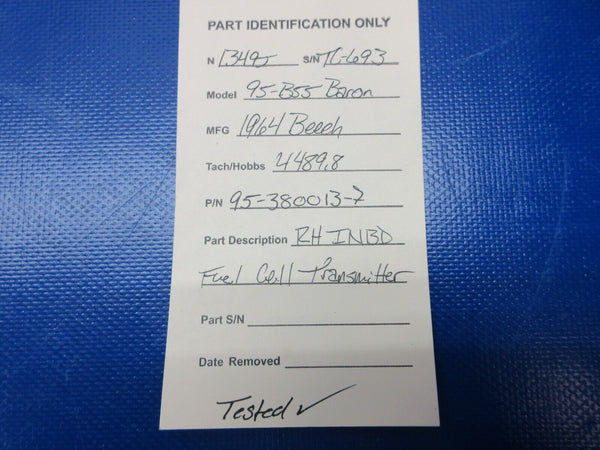 PART IDENTIFICATION ONLY
N 1349J S/N TC-693
Model 95-B55 Baron
MFG 1964 Beech
Tach/Hobbs 4489.8
P/N 95-380013-7
Part Description RH INBD
Fuel Cell Transmitter
Part S/N
Date Removed
Tested ✓